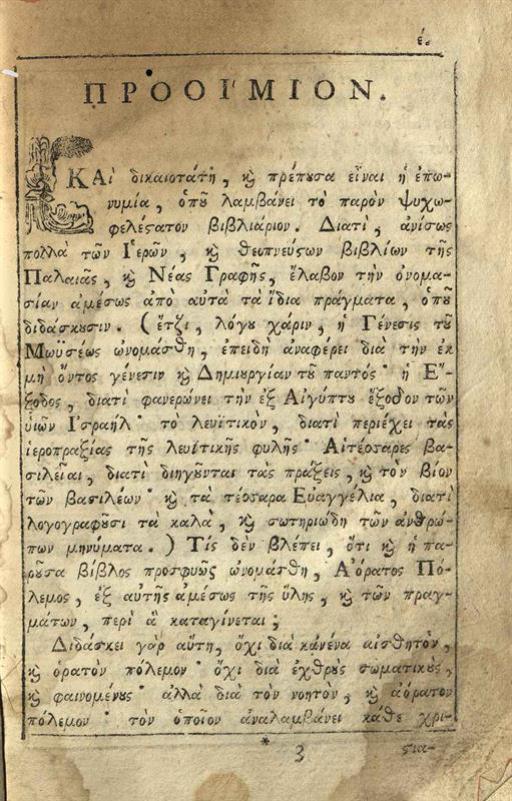 έ.
ΠΡΟΟΙ´ΜΙΟΝ.
ΚΑὶ δικαιοτάτη, ϗ πρέπȣσα εἶναι ἡ ἐπω-
νυμία, ὁποῦ λαμβάνει τὸ παρὸν ψυχω-
φελέςατον βιβλιάριον. Διατὶ, ἀνίσως
πολλὰ τῶν Ἱερῶν, ϗ θεοπνεύςων βιβλίων τῆς
Παλαιᾶς, ϗ Νέας Γραφῆς, ἔλαβον τὴν ὀνομα-
σίαν ἀμέσως ἀπὸ αὐτὰ τὰ ἴδια πράγματα, ὁποῦ
διδάσκȣσιν. (ἔτζι, λόγȣ χάριν, ἡ Γένεσις τȣ͂
Μωϋσέως ὠνομάσθη, ἐπειδὴ ἀναφέρει διὰ τὴν ἐκ
μὴ ὄντος γένεσιν ϗ Δημιȣργίαν τȣ͂ παντός· ἡ Ἔ-
ξοδος, διατὶ φανερώνει τὴν ἐξ Αἰγύπτȣ ἔξοδον τῶν
ὑιῶν Ἰσραήλ· τὸ λευϊτικὸν, διατὶ περιέχει τὰς
ἱεροπραξίας τῆς λευϊτικῆς φυλῆς· Αἱ τέσσαρες βα-
σιλεῖαι, διατὶ διηγȣ͂νται τὰς πράξεις, ϗ τὸν βίον
τῶν βασιλέων· ϗ τὰ τέσσαρα Εὐαγγέλια, διατὶ
λογογραφȣ͂σι τὰ καλὰ, ϗ σωτηριώδη τῶν ἀνθρώ-
πων μηνύματα.) Τίς δὲν βλέπει, ὅτι ϗ ἡ πα-
ρȣ͂σα βίβλος προσφυῶς ὠνομάσθη, Ἀόρατος Πό-
λεμος, ἐξ αὐτῆς ἀμέσως τῆς ὕλης, ϗ τῶν πραγ-
μάτων, περὶ ἃ καταγίνεται;
Διδάσκει γὰρ αὕτη, ὄχι διὰ κᾀνένα αἰσθητὸν,
ϗ ὁρατὸν πόλεμον· ὄχι διὰ ἐχθρȣ̀ς σωματικȣ̀ς,
ϗ φαινομένȣς· ἀλλὰ διὰ τὸν νοητὸν, ϗ ἀόρατον
πόλεμον· τὸν ὁποῖον ἀναλαμβάνει κάθε χρι-
* 3 ςια-